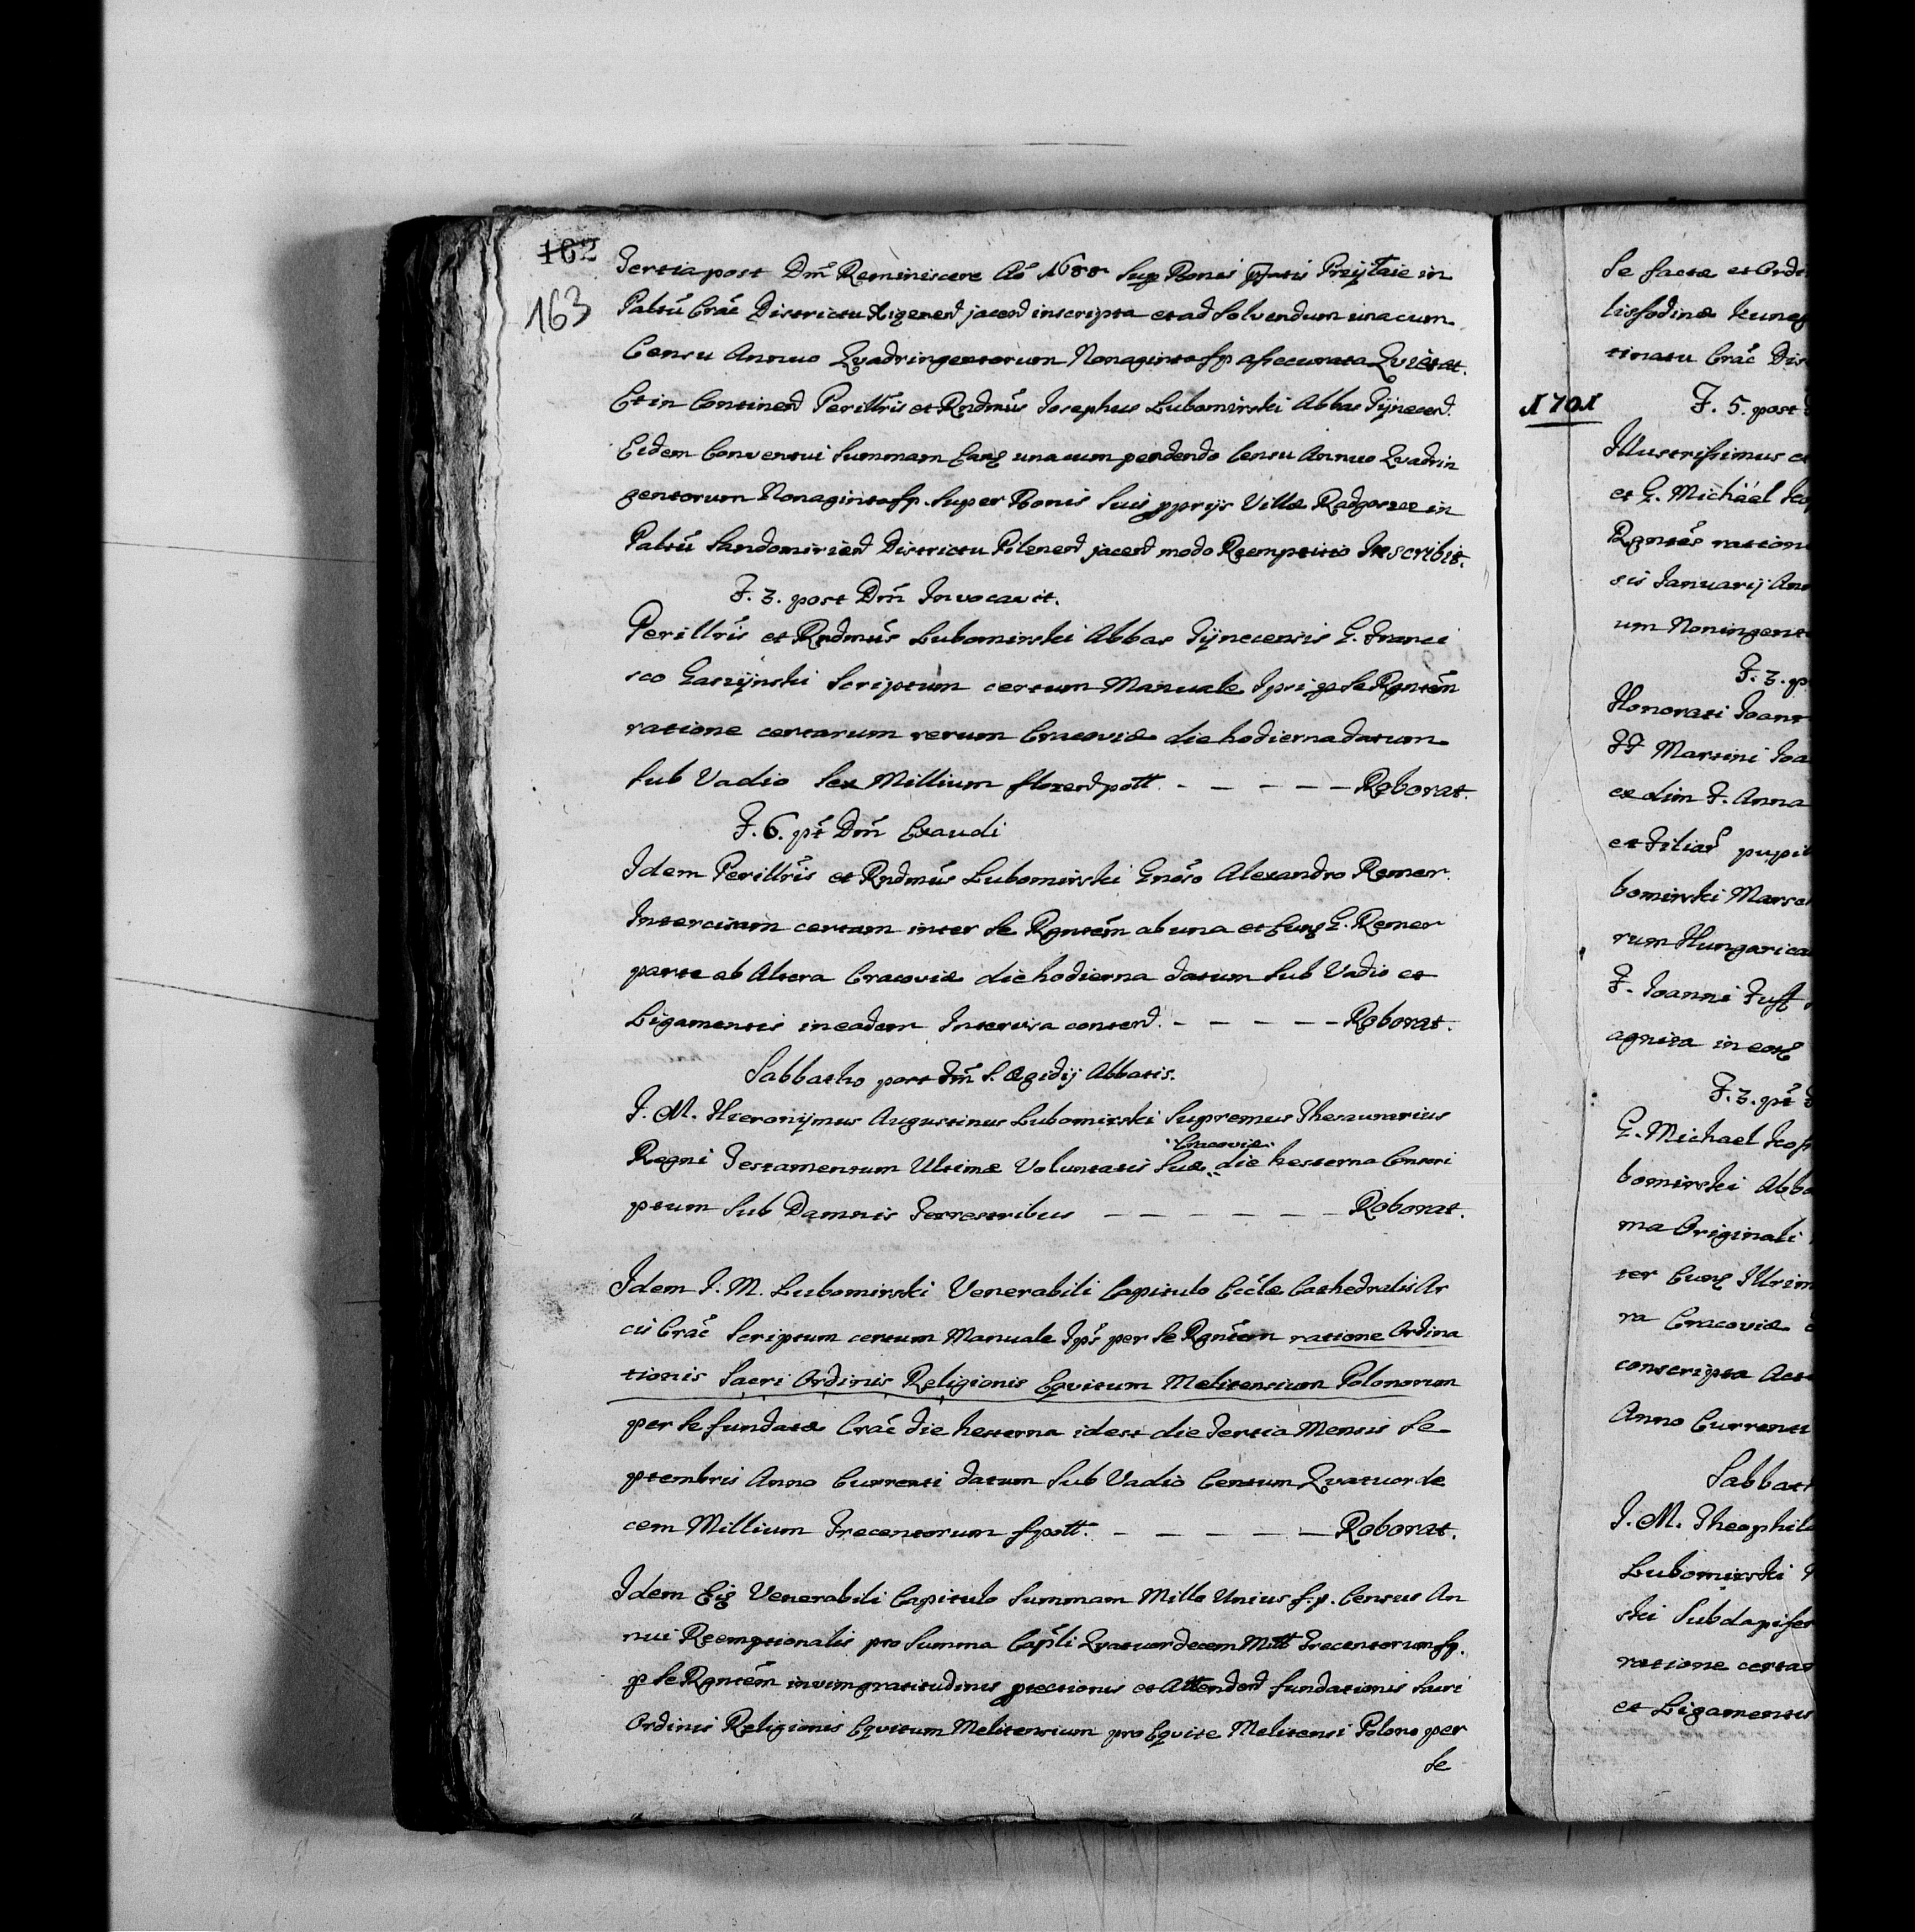 162
163
Tertia post Dm̃ Reminiscere Aõ 1688 Sup Bonis in
Paltũ Crac̃ Districtu Xigznen jacen inscripta et ad Solvendum una cum
Censu Annuo Qvadringentorum Nonaginta fp assecurata Qvietat.
Et in Continen Perillr̃is et Rndmũs Josephus Lubomirski Abbas Tÿnecen.
Eidem Conventui Summam Eanq una cum pendendo Censu Annuo Qvadrin
gentorum Nonaginta fp. Super Bonis Suis pprijs Villæ Radgoszcz in
Paltũ Sandomirien Districtu Pilznen jacen modo Reemptitio Inscribit.
F. 3. post Dm̃ Invocavit.
Perillr̃is et Rndmũs Lubomirski Abbas Tÿnecensis G. Franci
sco Gaszÿnski Scriptum certum Manuale Ipsi p Se Rgntẽm
ratione certarum rerum Cracoviæ die hodierna datum
Sub Vadio Sex Millium floren poltt. - - - - - Roborat.
F. 6. pt̃ Dm̃ Exaudi
Idem Perillr̃is et Rndmũs Lubomirski Gnõso Alexandro Remer
Intercisam certam inter Se Rgntẽm ab una et Eunq G. Remer
parte ab Altera Cracoviæ die hodierna datum Sub Vadio et
Ligamentis in eadem Intercisa conten. - - - - - Roborat.
Sabbatho post Fm̃ S. Ægidij Abbatis.
I. M. Hieronÿmus Augustinus Lubomirski Supremus Thesaurarius
Cracoviæ
Regni Testamentum Ultimæ Voluntatis Suæ die hesterna Conscri
ptum Sub Damnis Terrestribus - - - - - - Roborat.
Idem I. M. Lubomirski Venerabili Capitulo Eccłæ Cathedralis Ar
cis Crac̃ Scriptum certum Manuale Ips̃ per Se Rgntẽm ratione Ordina
tionis Sacri Ordinis Religionis Eqvitum Melitensium Polonorum
per Se fundatæ Crac̃ die hesterna idest die Tertia Mensis Se
ptembris Anno Currenti datum Sub Vadio Centum Qvatuor de
cem Millium Trecentorum fpoltt. - - - - - Roborat.
Idem Eiq Venerabili Capitulo Summam Mille Unius f. p. Census An
nui Reemptionalis pro Summa Capli Qvatuordecem Mill Trecentorum fp.
p Se Rgntẽm in vim gratitudinis ptectionis et Attenden fundationis Sacri
Ordinis Religionis Eqvitum Melitensium pro Eqvite Melitensi Polono per
Se
Se factæ et Ordi
tinatu Crac̃ Dis
1701
F. 5. post
Illustrissimus
et G. Michael
Rgntẽs ration
sis Januarij An
um Noningent
F. 3. p
Honorati Joan
FF Martini Joa
ex dim F. Anna
et Filiar pupil
bomirski Marsc
rum Hungarica
F. Joanni
agnita in
F. 3. pt̃
G. Michael
bomirski Abb
ma Originali
ter Eunq Illrim
ra Cracoviæ
conscripta Act
Anno Current
Sabbat
I. M. Theophil
Lubomirski
ski Subdapifer
ratione certar
et Ligamentis